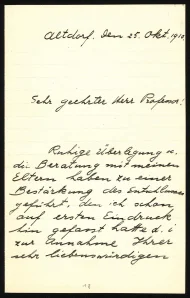 Altdorf, den 25. Okt. 1910
Sehr geehrter Herr Professor!
Ruhige Überlegung u.
die Beratung mit meinen
Eltern haben zu einer
Bestärkung des Entschlusses
geführt, den ich schon
auf ersten Eindruck
hin gefasst hatte d. i
zur Annahme Ihrer
sehr liebenswürdigen